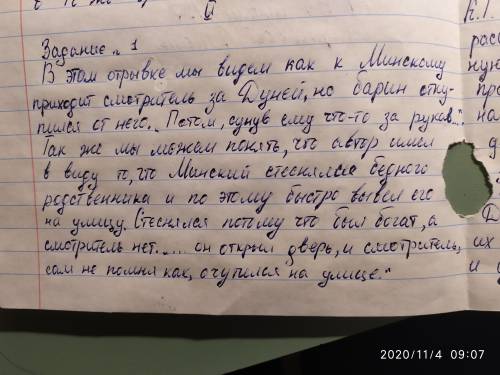 Задание n 1
В этом отрывке мы видем как к Минскому
приходит смотритель за Дуней, но барин отку-
пился от него. „Потом, сунув ему что-то за рукав..."
Так же мы можем понять, что автор имел
в виду то, что Минский стеснялся бедного
родственника и по этому быстро вывел его
на улицу. Стеснялся потому что был богат, а
смотритель нет. „... он открыл дверь, и смотритель,
сам не помня как, очутился на улице."
расс
ную
про
на
д
их
и
2020/11/4 09:07